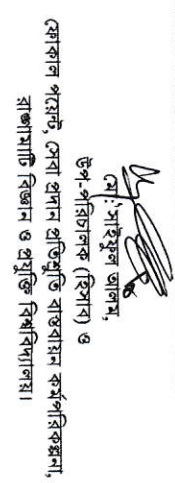 মো: সাইফুল আলম,
উপ-পরিচালক (হিসাব) ও
ফোকাল পয়েন্ট, সেবা প্রদান প্রতিশ্রুতি বাস্তবায়ন কর্মপরিকল্পনা,
রাঙ্গামাটি বিজ্ঞান ও প্রযুক্তি বিশ্ববিদ্যালয়।